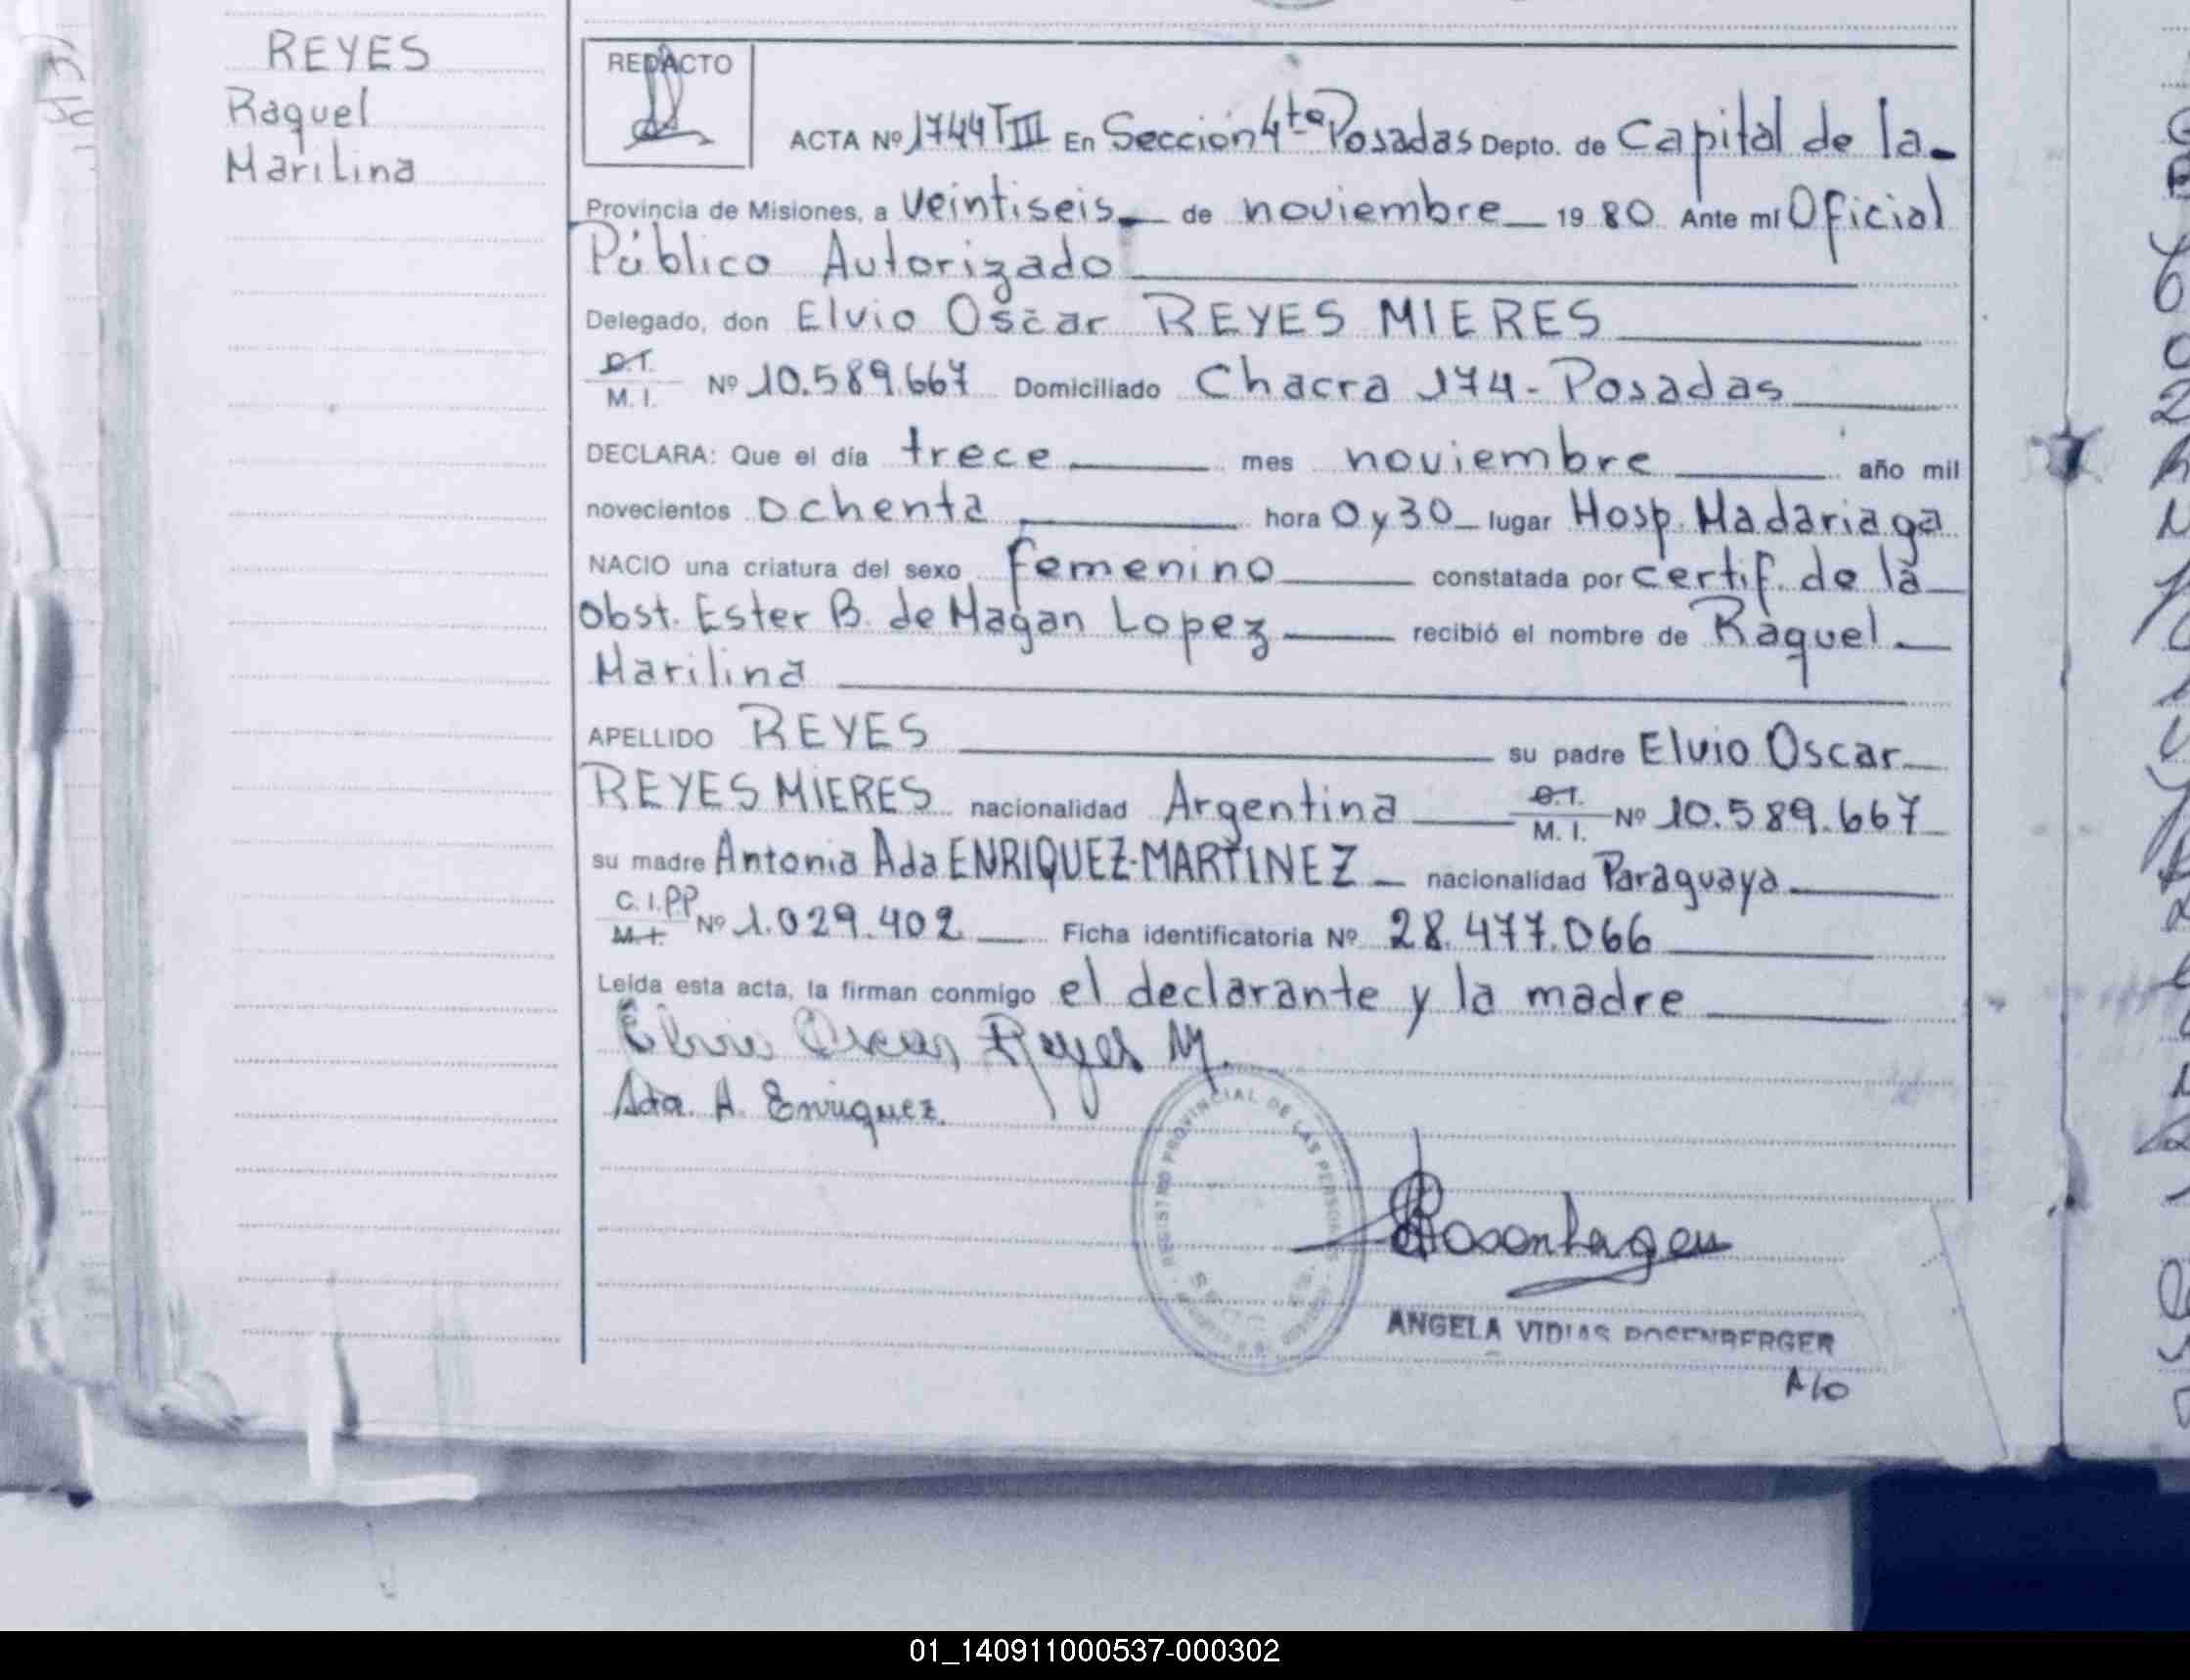 REYES
Raquel
Marilina
REDACTO
ACTA Nº 1744 T III En Sección 4ta Posadas Depto. de Capital de la
Provincia de Misiones, a veintiseis de noviembre 19 80 Ante mí Oficial
Público Autorizado
Delegado, don Elvio Oscar REYES MIERES
D.T.
M. I. Nº 10.589.667 Domiciliado Chacra 174 - Posadas
DECLARA: Que el día trece mes noviembre año mil
novecientos ochenta hora 0 y 30 lugar Hosp. Madariaga
NACIO una criatura del sexo femenino constatada por certif. de la
obst. Ester B. de Magan Lopez recibió el nombre de Raquel
Marilina
APELLIDO REYES su padre Elvio Oscar
REYES MIERES nacionalidad Argentina
M. I. Nº 10.589.667
su madre Antonia Ada ENRIQUEZ-MARTINEZ nacionalidad Paraguaya
C. I. PP
M. I. Nº 1.029.402 Ficha identificatoria Nº 28.477.066
Leída esta acta, la firman conmigo el declarante y la madre
Elvio Oscar Reyes M.
Ada. A. Enriquez.
REGISTRO PROVINCIAL DE LAS PERSONAS
ANGELA VIDIAS ROSENBERGER
A/O
01_140911000537-000302